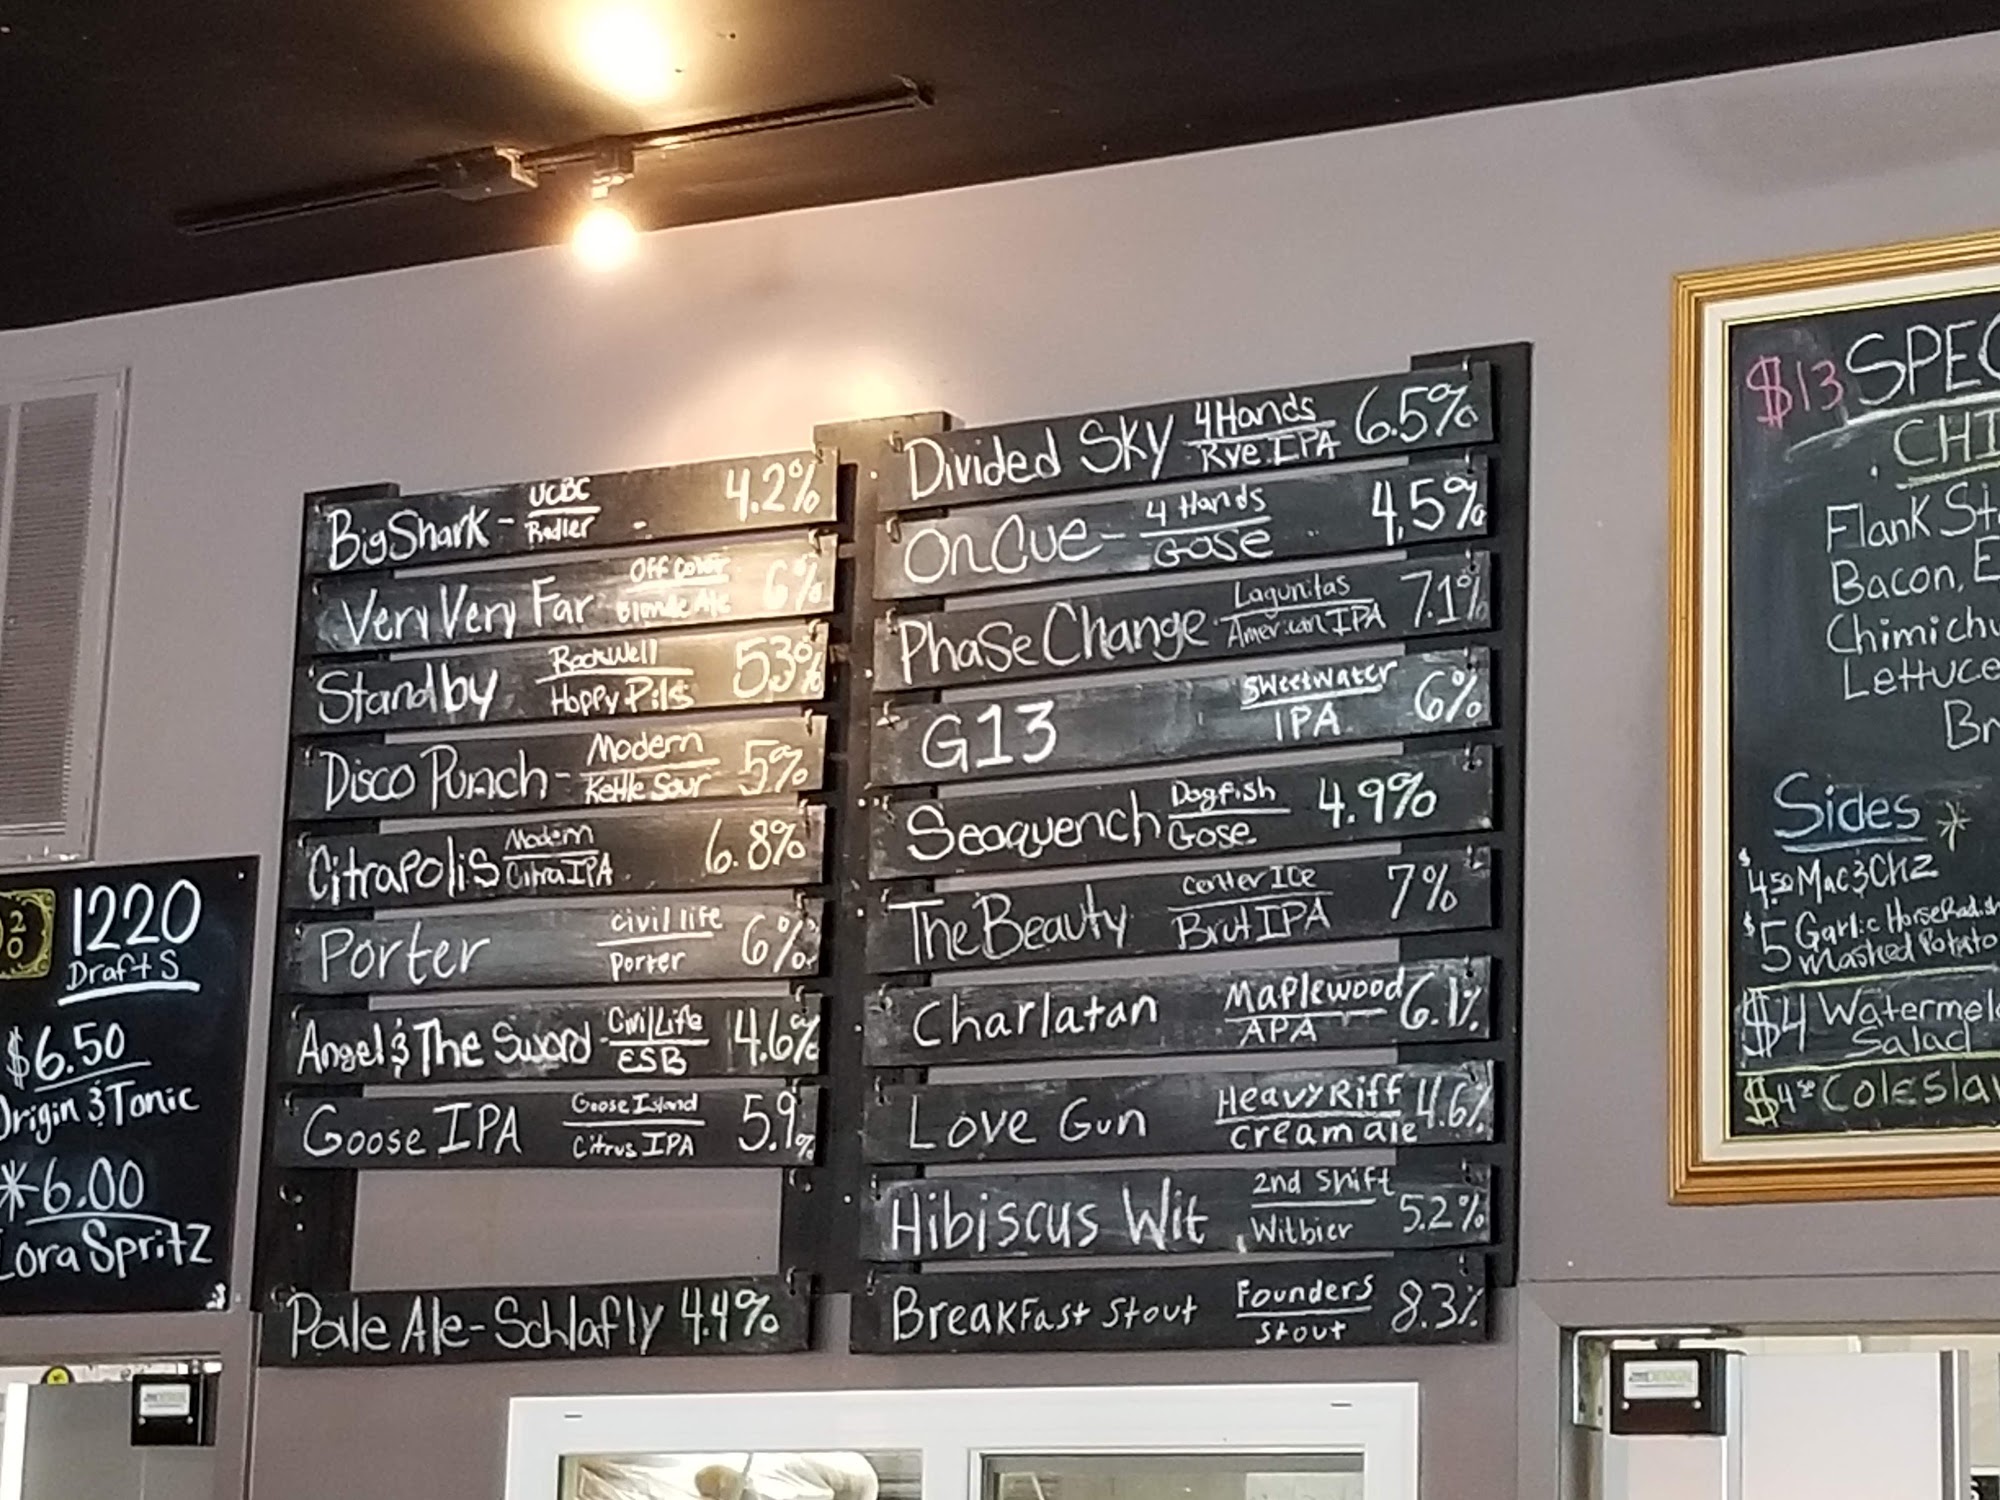 BigShark - UCBC 4.2%
Radler
Very Very Far Off Color 6%
Blonde Ale
Standby Rockwell 53%
Hoppy Pils
Disco Punch - Modern 5%
Kettle Sour
Citrapolis Modern 6.8%
Citra IPA
Porter Civil life 6%
Porter
Angel & The Sword - Civil Life 4.6%
ESB
Goose IPA Goose Island 5.9%
Citrus IPA
Pale Ale - Schlafly 4.4%
Divided Sky 4Hands 6.5%
Rye IPA
On Cue - 4 Hands 4.5%
GOSE
Phase Change Lagunitas 7.1%
American IPA
G13 Sweetwater 6%
IPA
Seaquench Dogfish 4.9%
Gose
The Beauty Center Ice 7%
Brut IPA
Charlatan Maplewood 6.1%
APA
Love Gun Heavy Riff 4.6%
Cream ale
Hibiscus Wit 2nd Shift 5.2%
Witbier
Breakfast Stout Founders 8.3%
Stout
20
1220
Drafts
$6.50
Origin & Tonic
*6.00
Lora Spritz
$13 SPEC
CHI
Flank St
Bacon, E
Chimichu
Lettuce
Br
Sides *
$4.50 Mac & Chz
$5 Garlic HorseRadish
Mashed Potato
$4 Watermelo
Salad
$4.50 Coleslaw